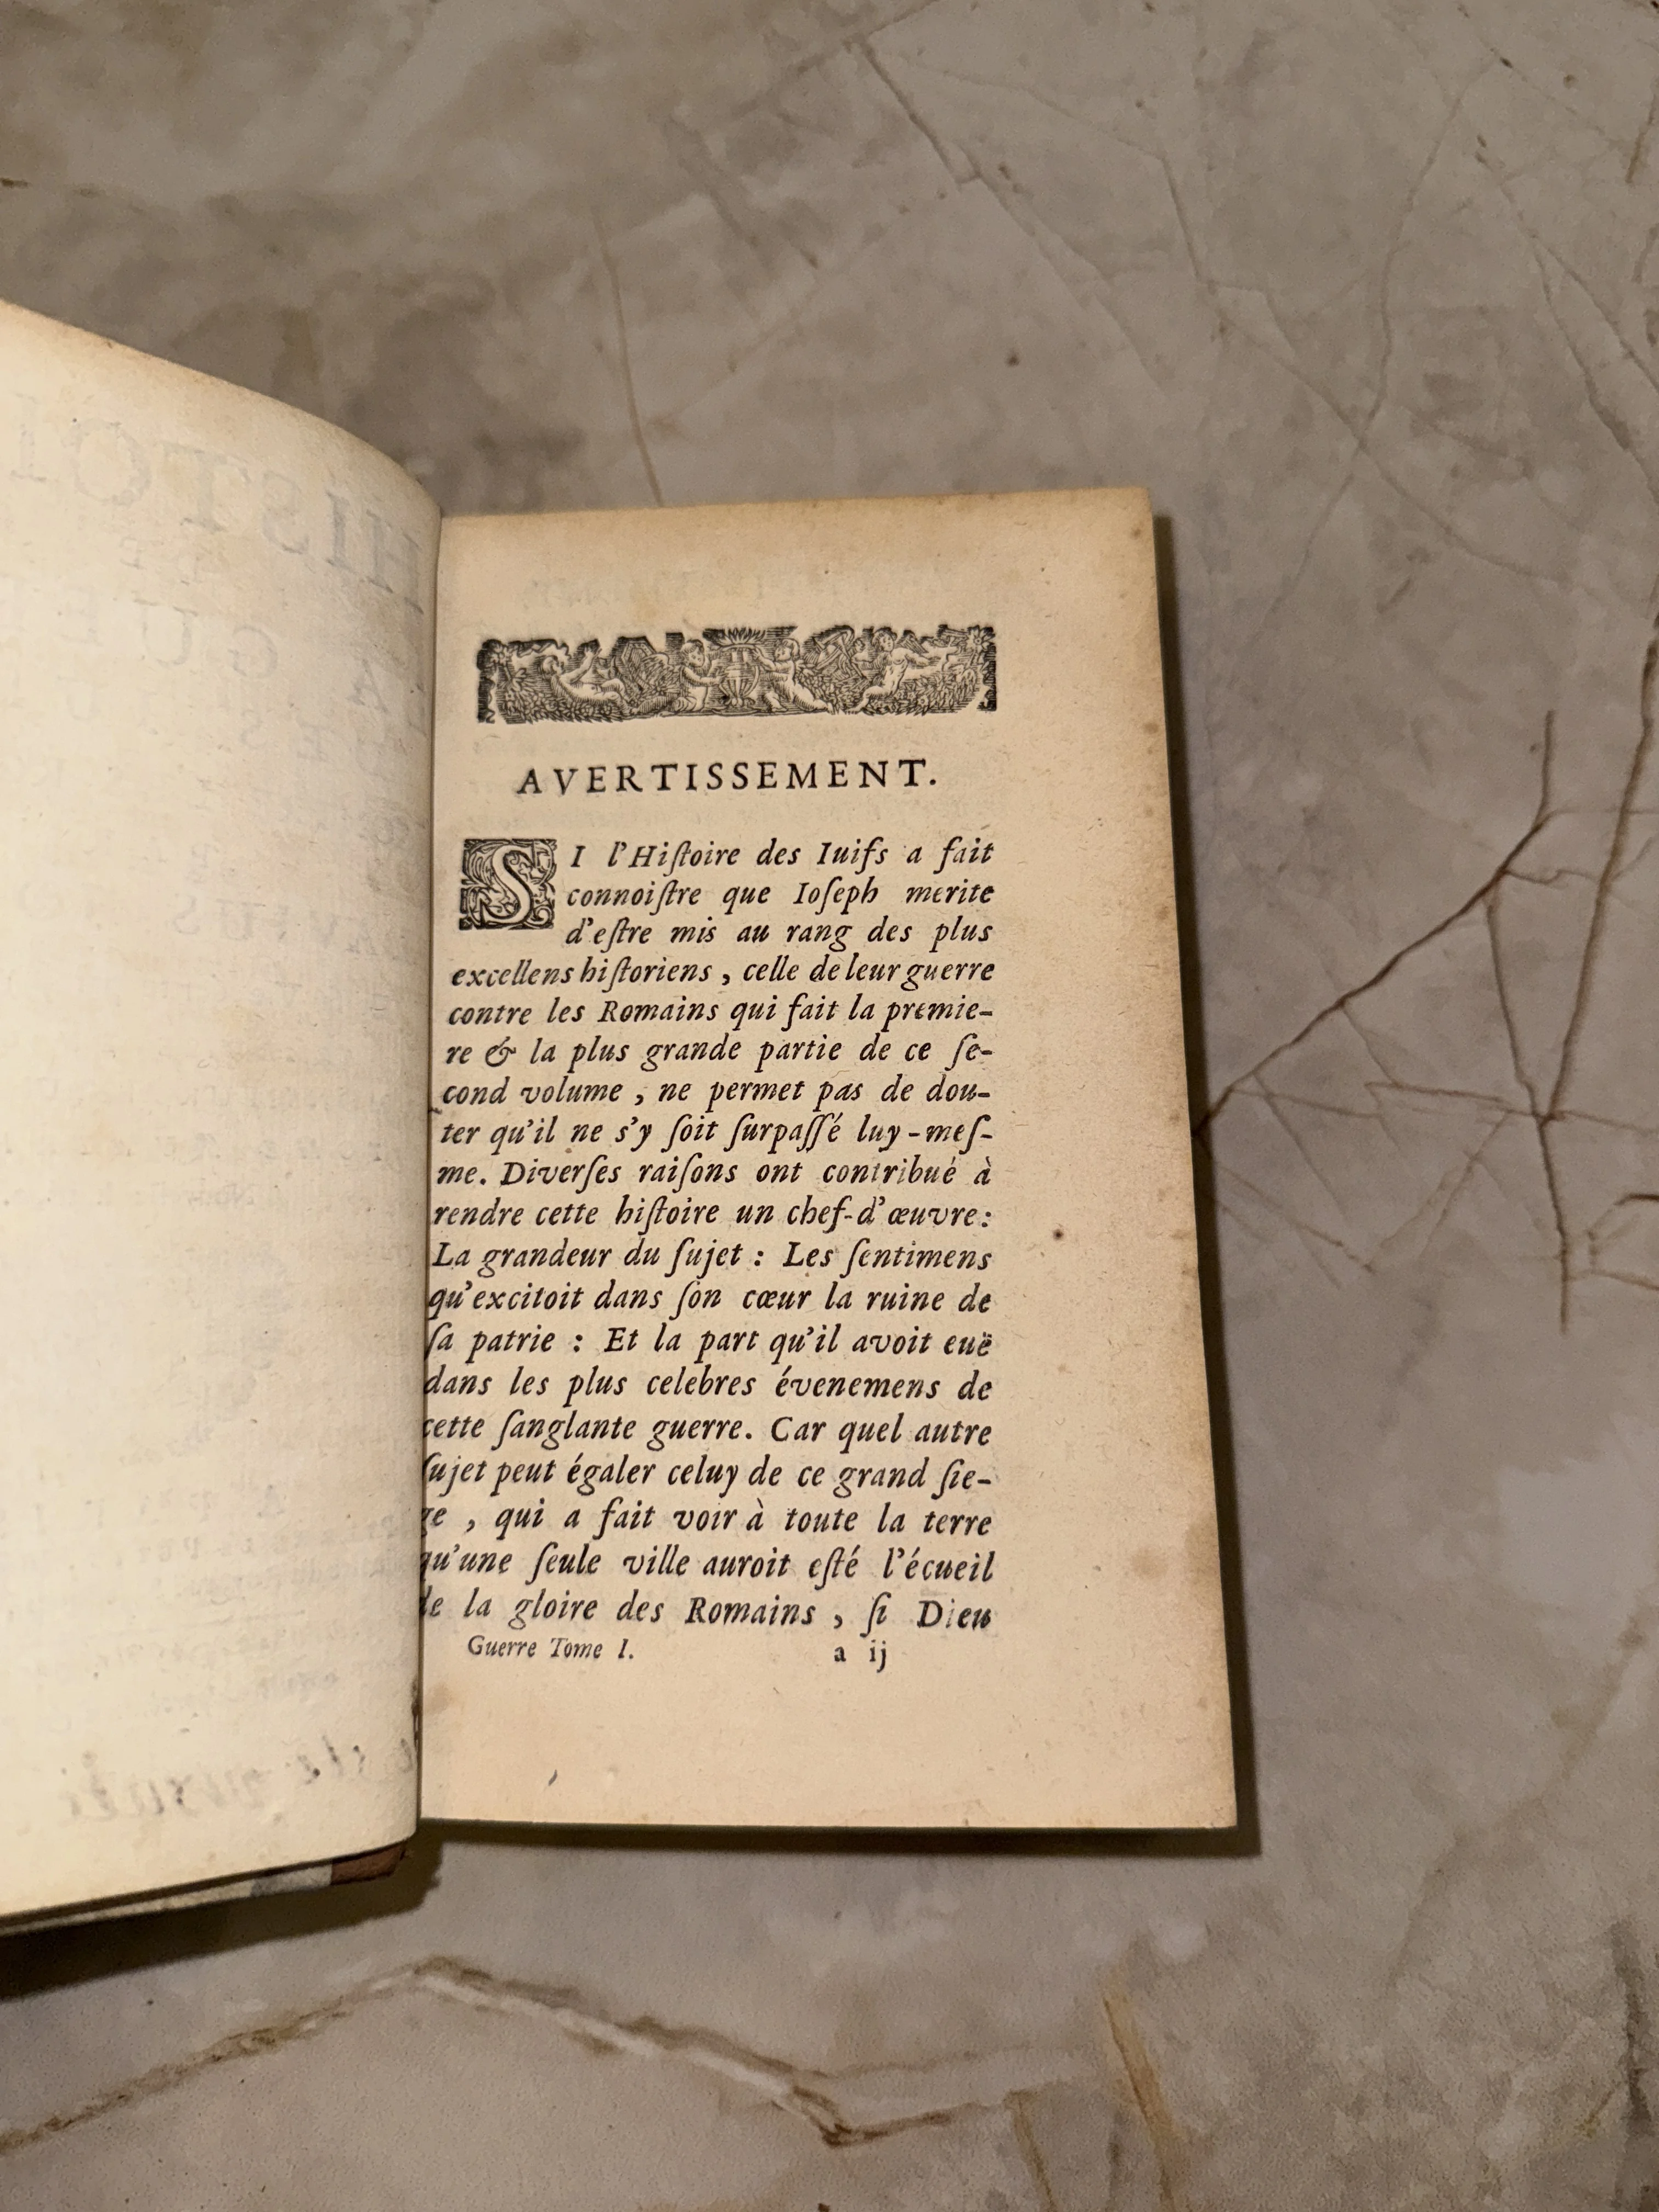 AVERTISSEMENT.
SI l'Hiſtoire des Iuifs a fait
connoiſtre que Ioſeph merite
d'eſtre mis au rang des plus
excellens hiſtoriens, celle de leur guerre
contre les Romains qui fait la premie-
re & la plus grande partie de ce ſe-
cond volume, ne permet pas de dou-
ter qu'il ne s'y ſoit ſurpaſſé luy-meſ-
me. Diverſes raiſons ont contribué à
rendre cette hiſtoire un chef-d'œuvre:
La grandeur du ſujet : Les ſentimens
qu'excitoit dans ſon cœur la ruine de
ſa patrie : Et la part qu'il avoit euë
dans les plus celebres évenemens de
cette ſanglante guerre. Car quel autre
ſujet peut égaler celuy de ce grand ſie-
ge, qui a fait voir à toute la terre
qu'une ſeule ville auroit eſté l'écueil
de la gloire des Romains, ſi Dieu
Guerre Tome I. a ij